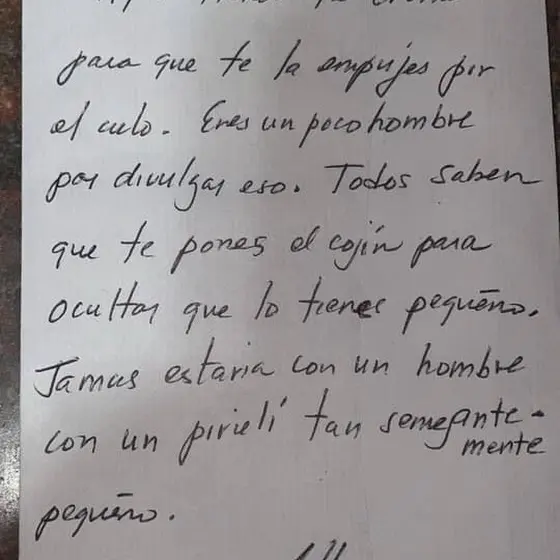 para que te la empujes por
el culo. Eres un poco hombre
por divulgar eso. Todos saben
que te pones el cojín para
ocultar que lo tienes pequeño.
Jamas estaria con un hombre
con un pirulí tan semejante-
mente
pequeño.